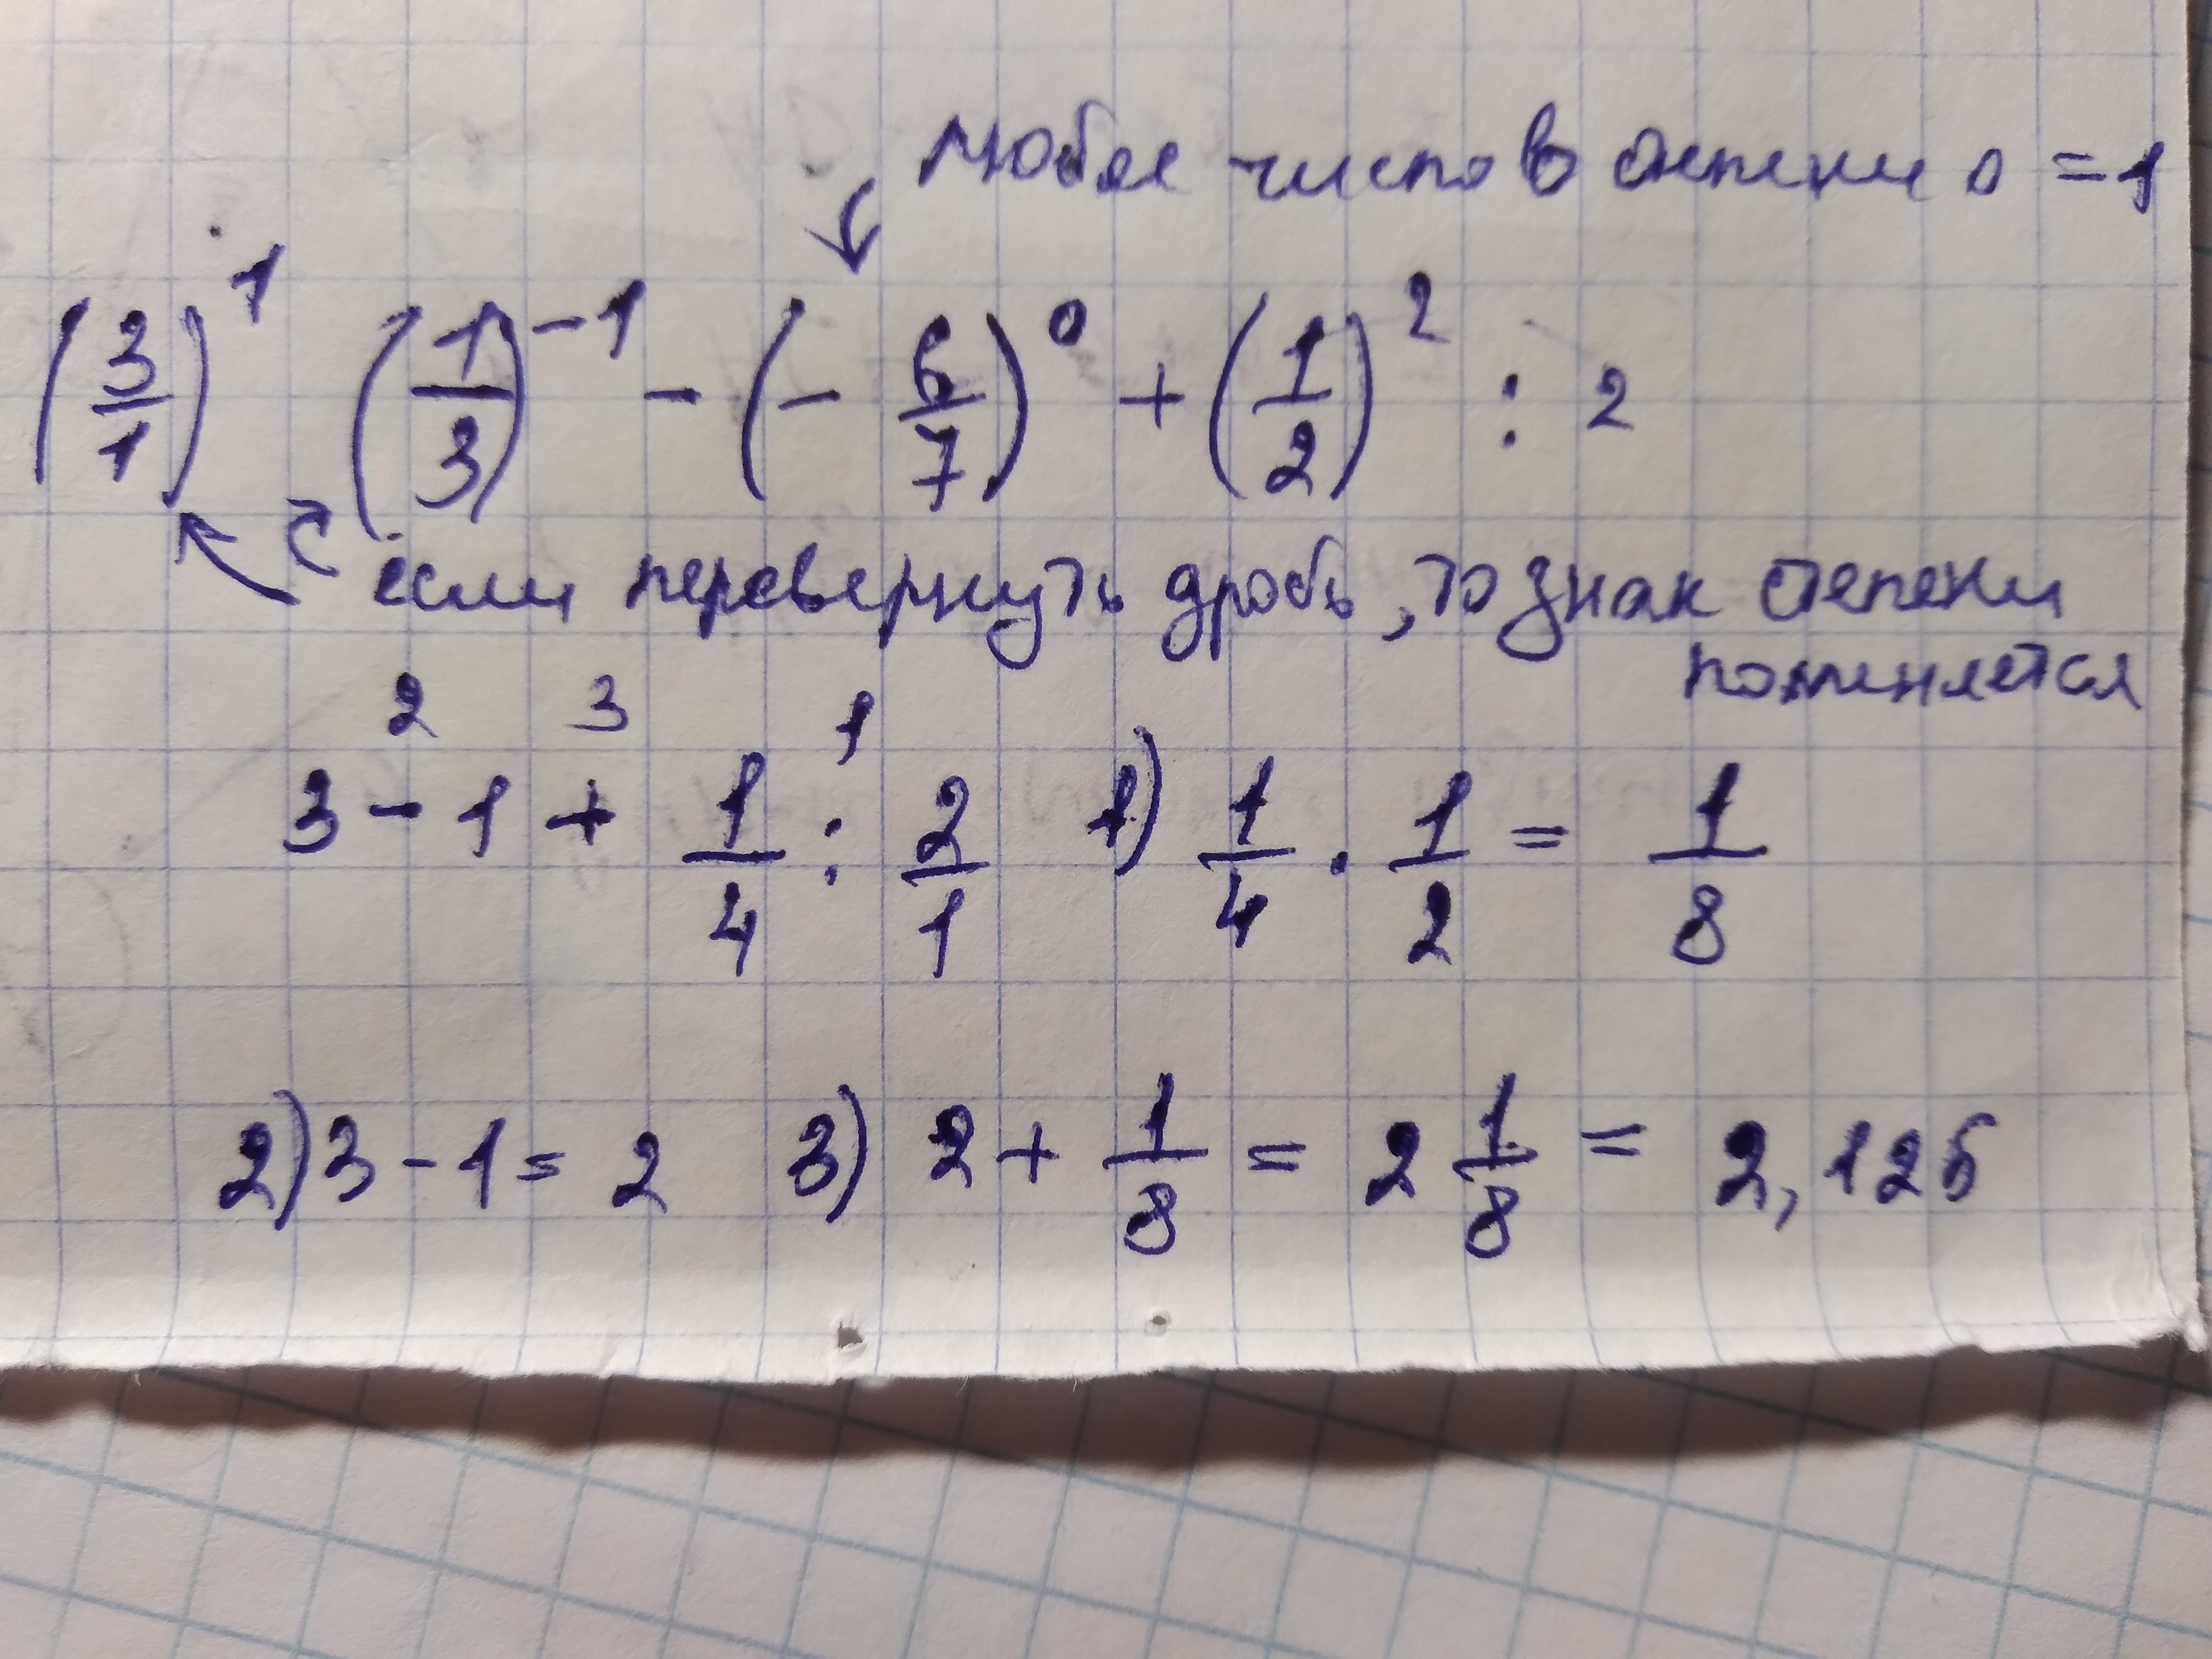 любое число в степени 0 = 1
(3/1)^1 (1/3)^-1 - (- 6/7)^0 + (1/2)^2 : 2
если перевернуть дробь, то знак степени
поменяется
2 3 1
3 - 1 + 1/4 : 2/1 1) 1/4 · 1/2 = 1/8
2) 3 - 1 = 2 3) 2 + 1/8 = 2 1/8 = 2,125